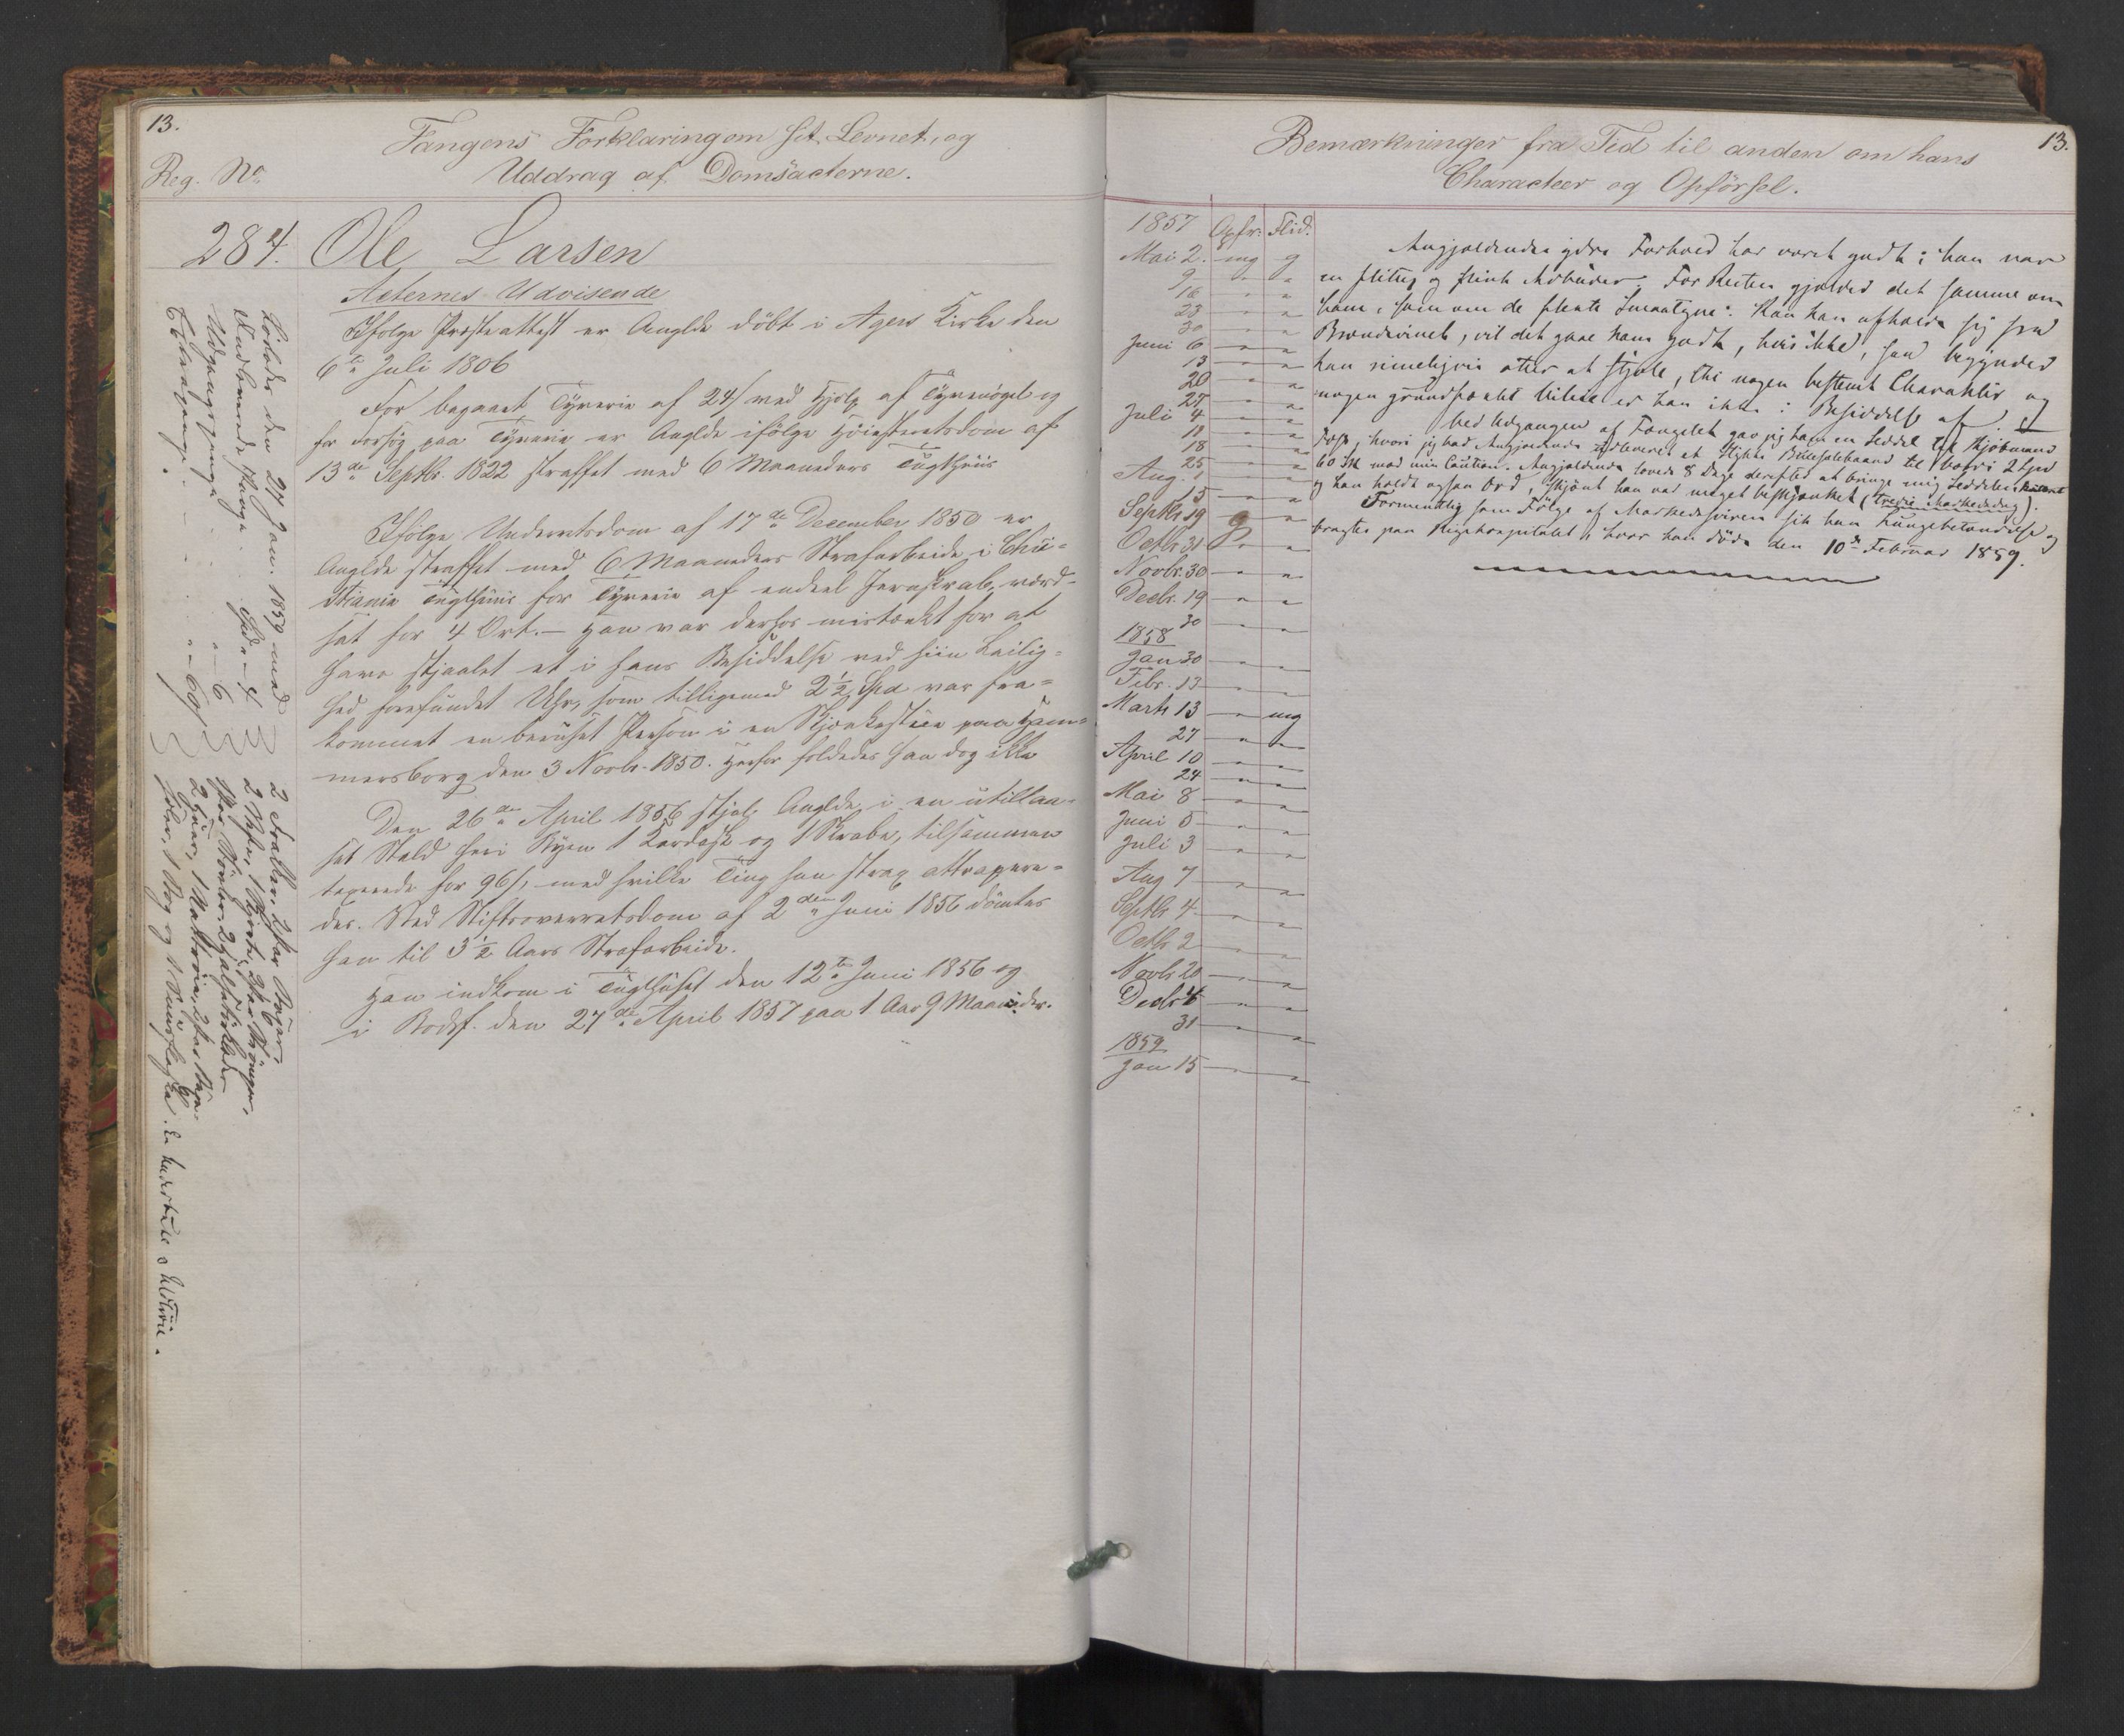 13.
Fangens Forklaring om sit Levnet, og
Uddrag af Domsacterne.
Reg. No.
284. Ole Larsen
Acternes Udvisende
Ifølge Præsteattest er Anglde döbt i Agers Kirke den
6te Juli 1806
For begaaet Tyverie af 24 s ved Hjelp af Tyvenögel og
for Forsög paa Tyverie er Anglde ifölge Höiesteretsdom af
13de Septbr. 1822 straffet med 6 Maaneders Tugthuus
Ifölge Underretsdom af 17de December 1850 er
Anglde straffet med 6 Maaneders Strafarbeide i Chri=
stiania Tugthuus for Tyverie af endeel Jernskrab, værd=
sat for 4 Ort. – Han var derhos mistænkt for at
have stjaalet et i hans Besiddelse ved hiin Leilig=
hed forefundet Uhr, som tilligemed 2½ Spd var fra=
kommet en beruset Person i en Skjænkestue paa Ham=
mersborg den 3 Novbr. 1850. Herfor fældedes han dog ikke
Den 26de April 1856 stjal Anglde i en utillaa=
set Stald her i Byen 1 Kardask og 1 Skrabe, tilsammen
taxerede for 96 s, med hvilke Ting han strax attrapere=
des. Ved Stiftsoverretsdom af 2den Juni 1856 dömtes
han til 3½ Aars Strafarbeide.
Han indkom i Tugthuset den 12te Juni 1856 og
i Bodsf. den 27de April 1857 paa 1 Aar 9 Maaneder.
Löslodes den 27 Jan. 1859 med
Indtjente Penge. Spd. 4
Udgangspenge - - " - 6
" - 60 s
2 Frakker, 2 Par Buxer,
2 Veste, 1 Skjorte, 2 Par Strömper,
2 Huer, 1 Nattröie, 2 Par
1 Bog og 1
13.
Bemærkninger fra Tid til anden om hans
Character og Opförsel.
1857 Opfr. Flid.
Mai 2. mg g
9 " "
16 " "
23 " "
30 " "
Juni 6 " "
13 " "
20 " "
27 " "
Juli 4 " "
11 " "
18 " "
25 " "
Aug. 1 " "
15 " "
Septbr 19 g "
Octbr 31 " "
Novbr. 30 " "
Decbr. 19 " "
30 " "
1858
Jan 30 " "
Febr. 13 " "
Marts 13 " mg
27 " "
April 10 " "
24 " "
Mai 8 " "
Juni 5 " "
Juli 3 " "
Aug 7 " "
Septbr 4 " "
Octbr 2 " "
Novbr 20 " "
Decbr 4 " "
31 " "
1859
Jan 15 " "
Angjældendes ydre Forhold har været godt; han var
en flittig og flink Arbeider. For Resten gjælder det samme om
ham, som om de fleste Smaatyve: Kan han afholde sig fra
Brændeviinet, vil det gaae ham godt, hvis ikke, saa begynder
han rimeligvis atter at stjæle, thi nogen bestemt Charakter og
nogen grundfæstet Villie er han ikke i Besiddelse af.
Ved Udgangen af Fængslet gav jeg ham en Seddel til Kjöbmand
hvori jeg bad Angjældende udleveret et Stykke til
60 Sk mod min Caution. Angjældende lovede 8 Dage derefter at bringe mig Seddelen
og han holdt ogsaa Ord, skjönt han var meget beskjænket (tredie Markedsdag).
Formentlig som Fölge af fik han Lungebetændelse og
bragtes paa Rigshospitalet, hvor han döde den 10de Februar 1859.